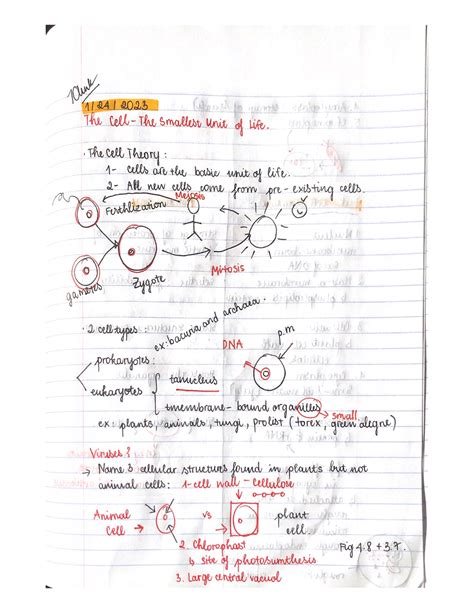 1/24/2023
The Cell - The Smallest Unit of Life.
· The Cell Theory :
1- cells are the basic unit of life.
2- All new cells come from pre-existing cells.
Meiosis
Fertilization
Mitosis
gametes
Zygote
· 2 cell types :
ex: bacuria and archaea.
prokaryotes :
eukaryotes
DNA
p.m
membrane-bound organilles
small
ex: plants, animals, fungi, protest (torex, green algne)
Viruses ?
→ Name 3 cellular structures found in plants but not
animal cells : 1- cell wall - cellulose
Animal
Cell →
vs
plant
cell.
2. Chlorophast
↳ site of photosumthesis
Fig 4.8 + 3.7.
3. Large central vacuol